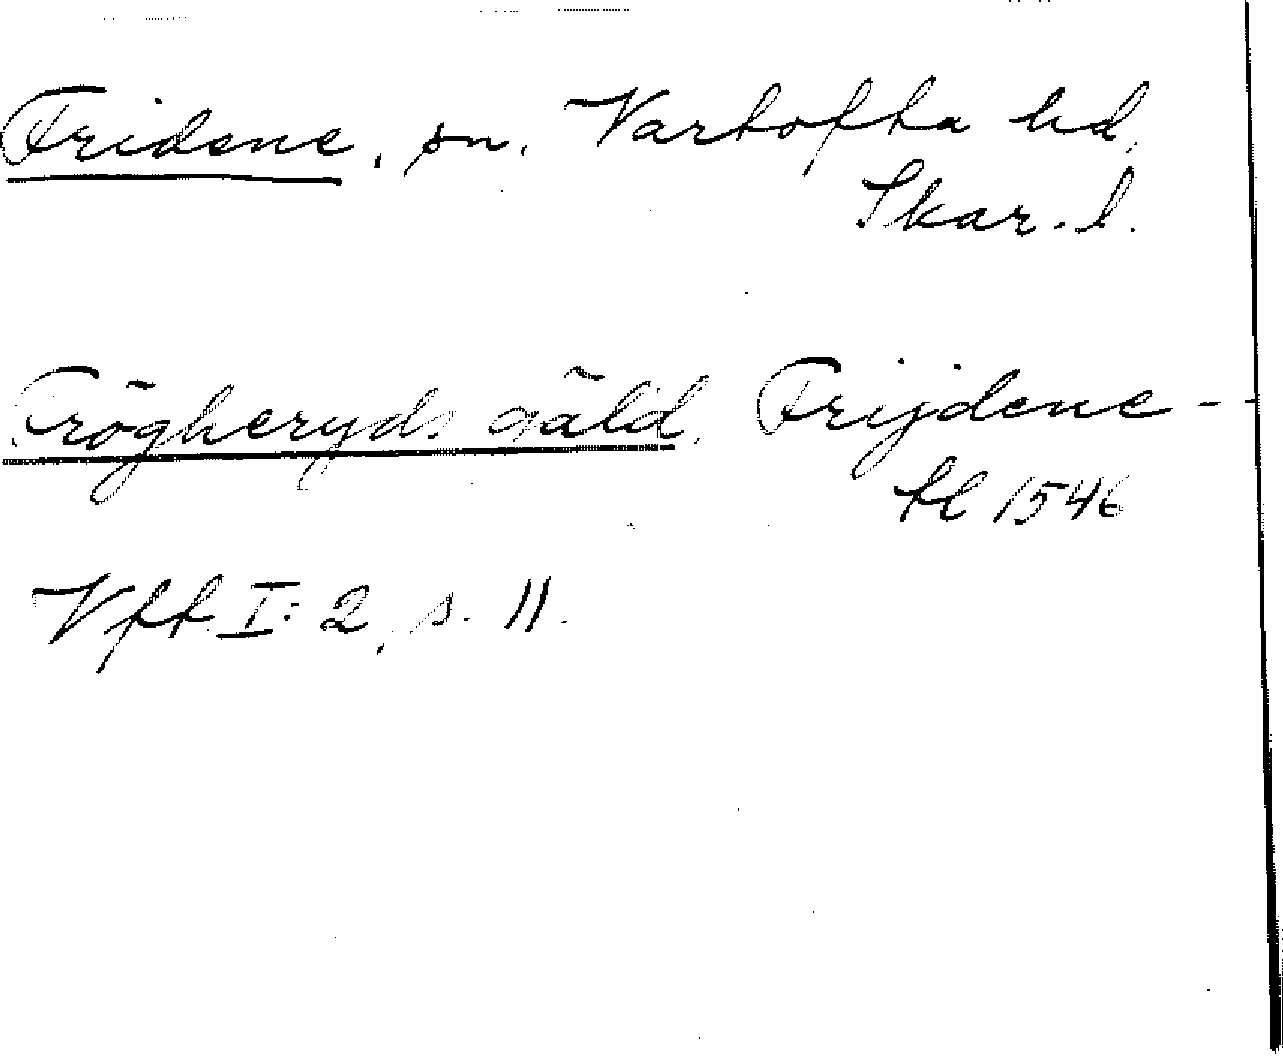 Fridene, sn, Vartofta hd,
Skar. l.
Frögheryds gäld, Frijdene -
kl 1546
Vft I: 2, s. 11.